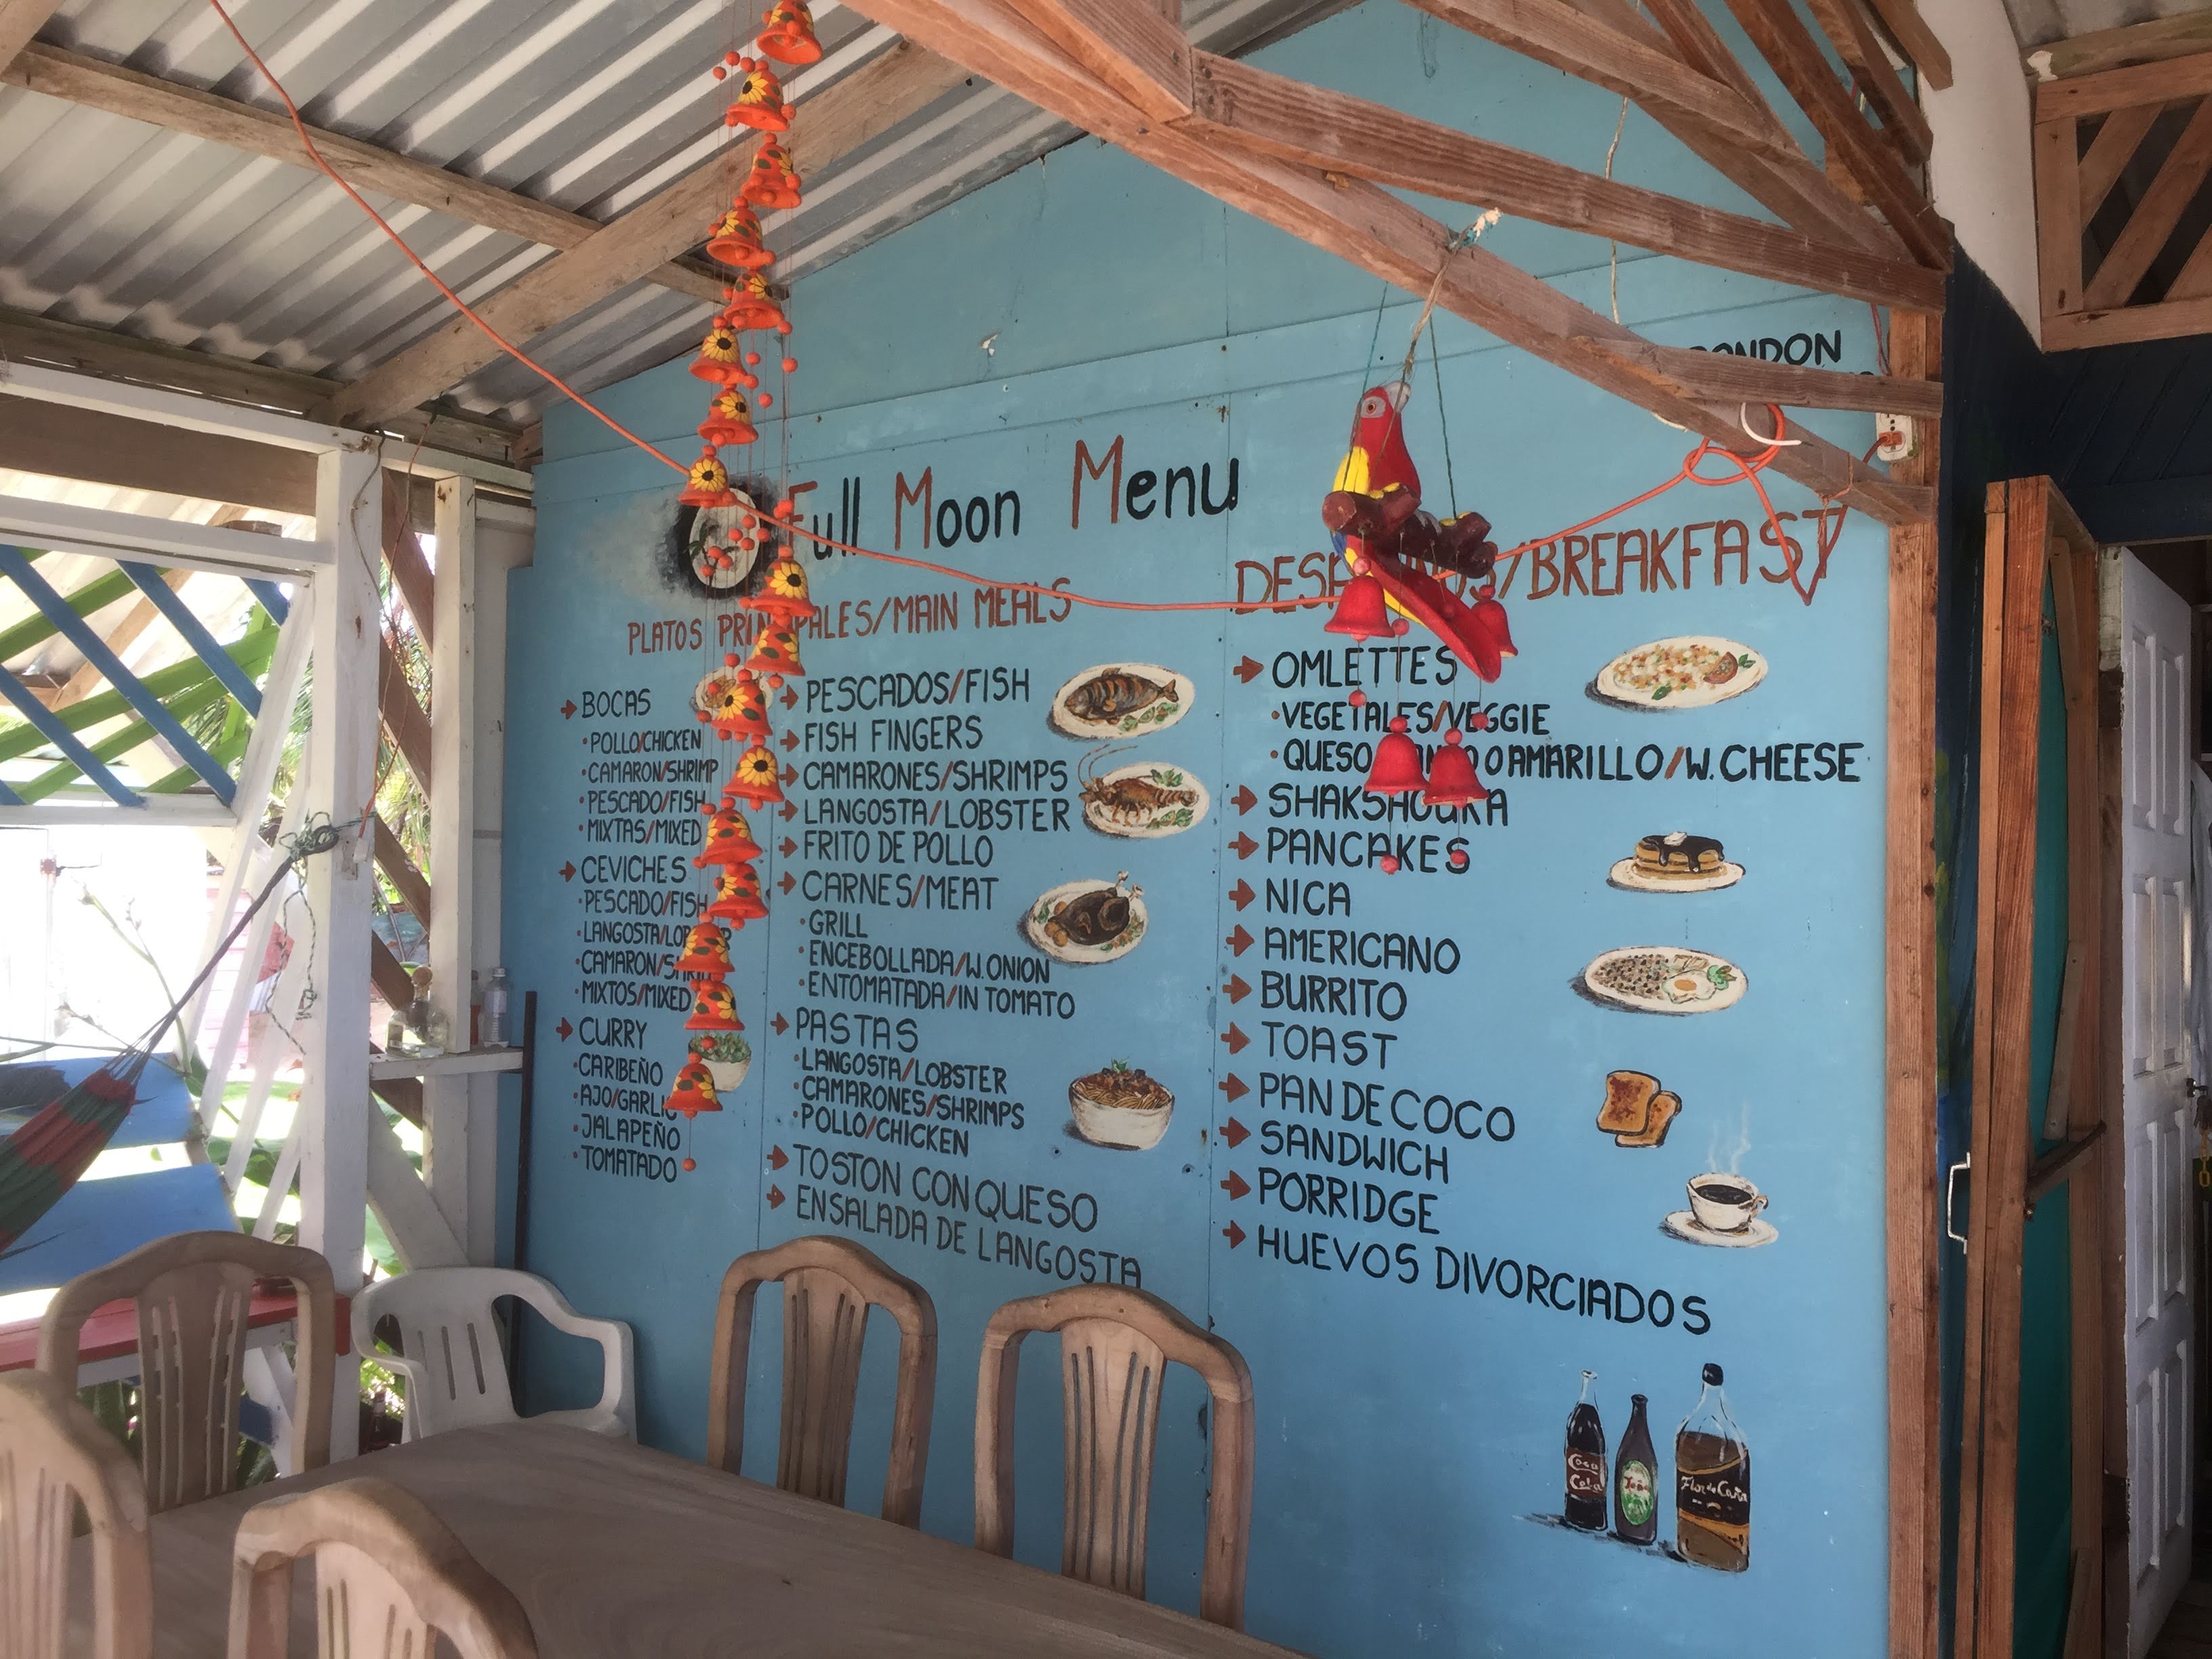 Full Moon Menu
PLATOS PRINCIPALES/MAIN MEALS
BOCAS
POLLO/CHICKEN
CAMARON/SHRIMP
PESCADO/FISH
MIXTAS/MIXED
CEVICHES
PESCADO/FISH
LANGOSTA/LOBSTER
CAMARON/SHRIMP
MIXTOS/MIXED
CURRY
CARIBEÑO
AJO/GARLIC
JALAPEÑO
TOMATADO
PESCADOS/FISH
FISH FINGERS
CAMARONES/SHRIMPS
LANGOSTA/LOBSTER
FRITO DE POLLO
CARNES/MEAT
GRILL
ENCEBOLLADA/W.ONION
ENTOMATADA/IN TOMATO
PASTAS
LANGOSTA/LOBSTER
CAMARONES/SHRIMPS
POLLO/CHICKEN
TOSTON CON QUESO
ENSALADA DE LANGOSTA
DESAYUNOS/BREAKFAST
OMLETTES
VEGETALES/VEGGIE
QUESO O AMARILLO/W. CHEESE
SHAKSHOUKA
PANCAKES
NICA
AMERICANO
BURRITO
TOAST
PAN DE COCO
SANDWICH
PORRIDGE
HUEVOS DIVORCIADOS
Coca Cola
Toña
Flor de Caña